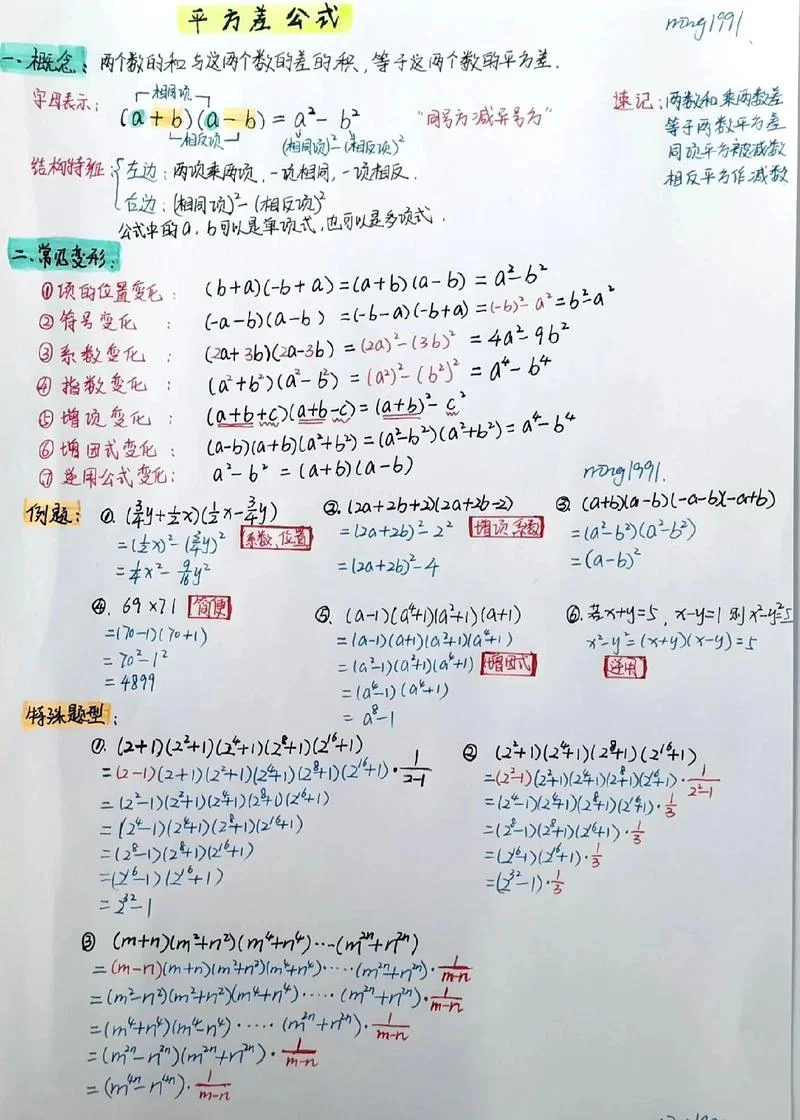 平方差公式
ming1991.
一.概念：两个数的和与这两个数的差的积，等于这两个数的平方差.
字母表示：
相同项
(a+b)(a-b)=a²-b²
相反项
(相同项)²-(相反项)²
"同号方减异号方"
速记：两数和乘两数差
等于两数平方差
同项平方被减数
相反平方作减数
结构特征：
左边：两项乘两项，一项相同，一项相反.
右边：(相同项)²-(相反项)²
公式中的a，b可以是单项式，也可以是多项式.
二.常见变形：
①项的位置变化：(b+a)(-b+a)=(a+b)(a-b)=a²-b²
②符号变化：(-a-b)(a-b)=(-b-a)(-b+a)=(-b)²-a²=b²-a²
③系数变化：(2a+3b)(2a-3b)=(2a)²-(3b)²=4a²-9b²
④指数变化：(a²+b²)(a²-b²)=(a²)²-(b²)²=a⁴-b⁴
⑤增项变化：(a+b+c)(a+b-c)=(a+b)²-c²
⑥增因式变化：(a-b)(a+b)(a²+b²)=(a²-b²)(a²+b²)=a⁴-b⁴
⑦逆用公式变化：a²-b²=(a+b)(a-b)
ming1991.
例题：
①.(3/4y+1/2x)(1/2x-3/4y)
=(1/2x)²-(3/4y)²
系数、位置
=1/4x²-9/16y²
②.(2a+2b+2)(2a+2b-2)
=(2a+2b)²-2²
增项系数
=(2a+2b)²-4
③.(a+b)(a-b)(-a-b)(-a+b)
=(a²-b²)(a²-b²)
=(a-b)²
④.69×71
简便
=(70-1)(70+1)
=70²-1²
=4899
⑤.(a-1)(a⁴+1)(a²+1)(a+1)
=(a-1)(a+1)(a²+1)(a⁴+1)
=(a²-1)(a²+1)(a⁴+1)
增因式
=(a⁴-1)(a⁴+1)
=a⁸-1
⑥.若x+y=5，x-y=1则x²-y²=5
x²-y²=(x+y)(x-y)=5
逆用
特殊题型：
①.(2+1)(2²+1)(2⁴+1)(2⁸+1)(2¹⁶+1)
=(2-1)(2+1)(2²+1)(2⁴+1)(2⁸+1)(2¹⁶+1)·1/2-1
=(2²-1)(2²+1)(2⁴+1)(2⁸+1)(2¹⁶+1)
=(2⁴-1)(2⁴+1)(2⁸+1)(2¹⁶+1)
=(2⁸-1)(2⁸+1)(2¹⁶+1)
=(2¹⁶-1)(2¹⁶+1)
=2³²-1
②(2²+1)(2⁴+1)(2⁸+1)(2¹⁶+1)
=(2²-1)(2²+1)(2⁴+1)(2⁸+1)(2¹⁶+1)·1/2²-1
=(2⁴-1)(2⁴+1)(2⁸+1)(2¹⁶+1)·1/3
=(2⁸-1)(2⁸+1)(2¹⁶+1)·1/3
=(2¹⁶+1)(2¹⁶+1)·1/3
=(2³²-1)·1/3
③(m+n)(m²+n²)(m⁴+n⁴)···(m²ⁿ+n²ⁿ)
=(m-n)(m+n)(m²+n²)(m⁴+n⁴)·····(m²ⁿ+n²ⁿ)·1/m-n
=(m²-n²)(m²+n²)(m⁴+n⁴)·····(m²ⁿ+n²ⁿ)·1/m-n
=(m⁴+n⁴)(m⁴-n⁴)·····(m²ⁿ+n²ⁿ)·1/m-n
=(m²ⁿ-n²ⁿ)(m²ⁿ+n²ⁿ)·1/m-n
=(m⁴ⁿ-n⁴ⁿ)·1/m-n